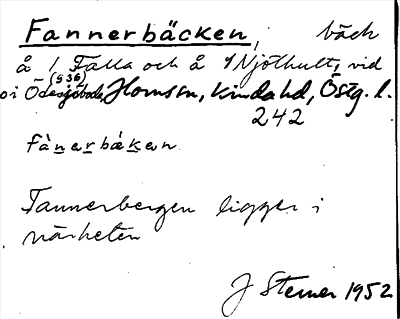 Fannerbäcken, bäck
å 1 Falla och å 1 Njöthult, vid
(S36)
o i Ödesjöbda, Hornsån, Kinda hd, Östg. l.
242
fànerbäkan
Fannerbergen ligger i
närheten
J Sterner 1952